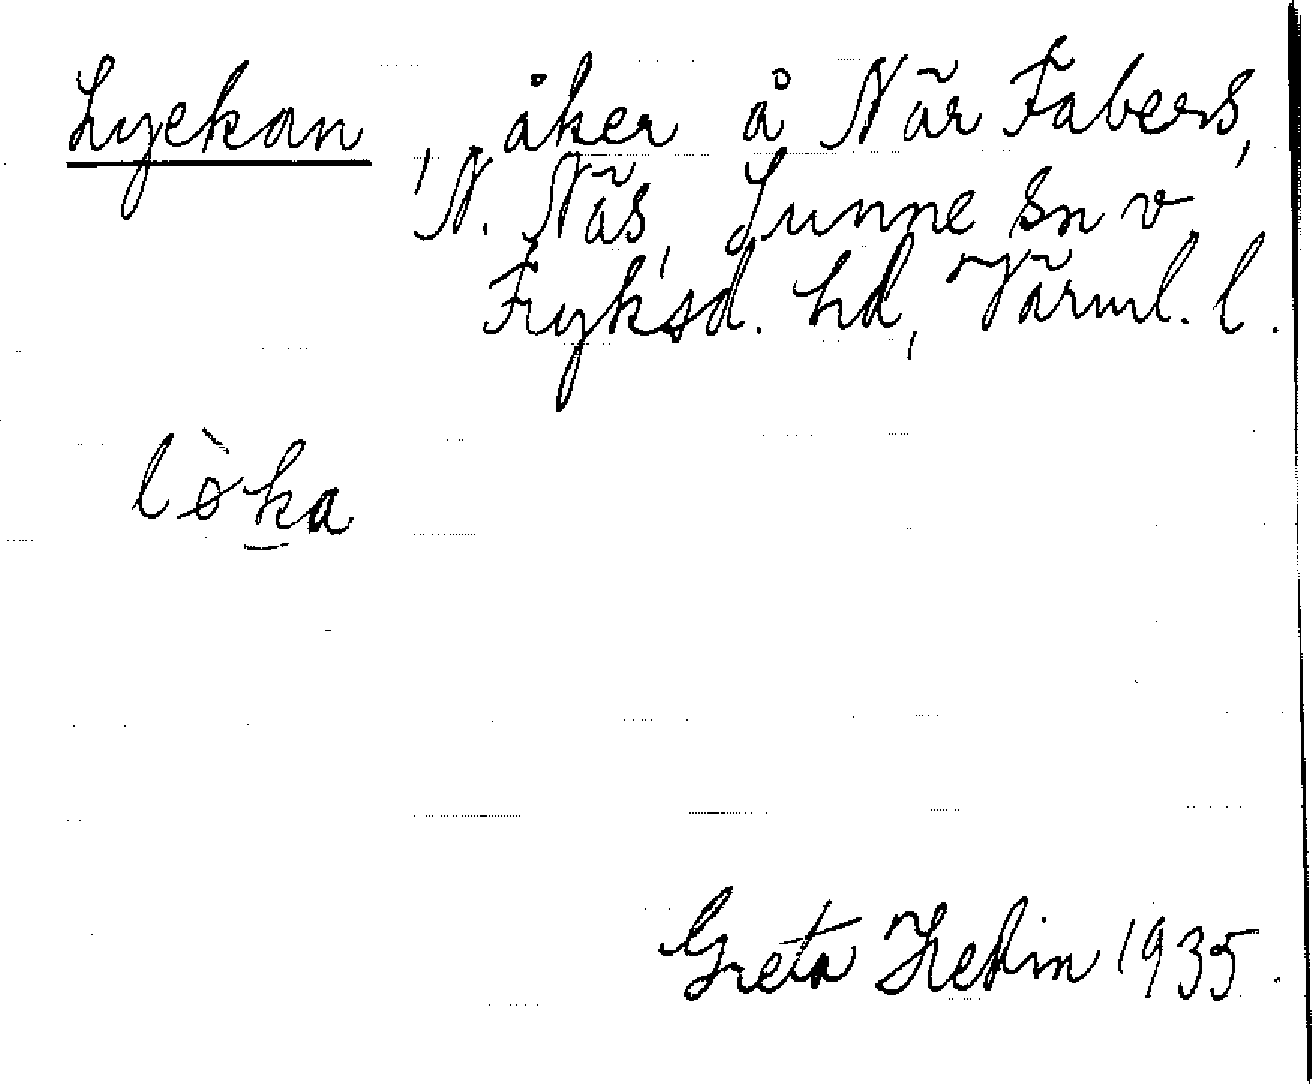 Lyckan, åker å När Fabers,
N. Näs, Sunne sn v
Fryksd. hd, Värml. l.
lø̀ka
Greta Hedin 1935.